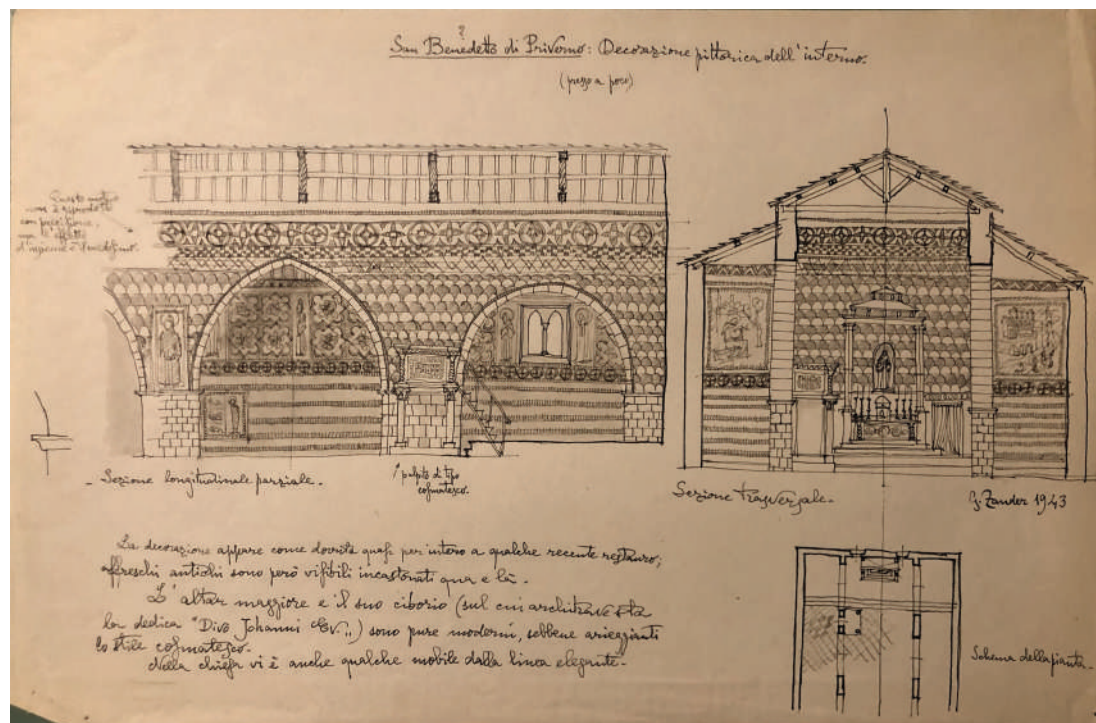 ?
San Benedetto di Priverno: Decorazione pittorica dell'interno.
(presso a poco)
Questo motivo
non è riprodotto
con precisione,
ma l'effetto
d'insieme è
Sezione longitudinale parziale.
pulpito di tipo
cosmatesco.
Sezione trasversale.
G. Zander 1943
La decorazione appare come dovuta quasi per intero a qualche recente restauro;
affreschi antichi sono però visibili incastonati qua e là.
L'altar maggiore e il suo ciborio (sul cui architrave sta
la dedica "Divo Johanni Ev.,,) sono pure moderni, sebbene arieggianti
lo stile cosmatesco.
Nella chiesa vi è anche qualche mobile dalla linea elegante.
Schema della pianta.